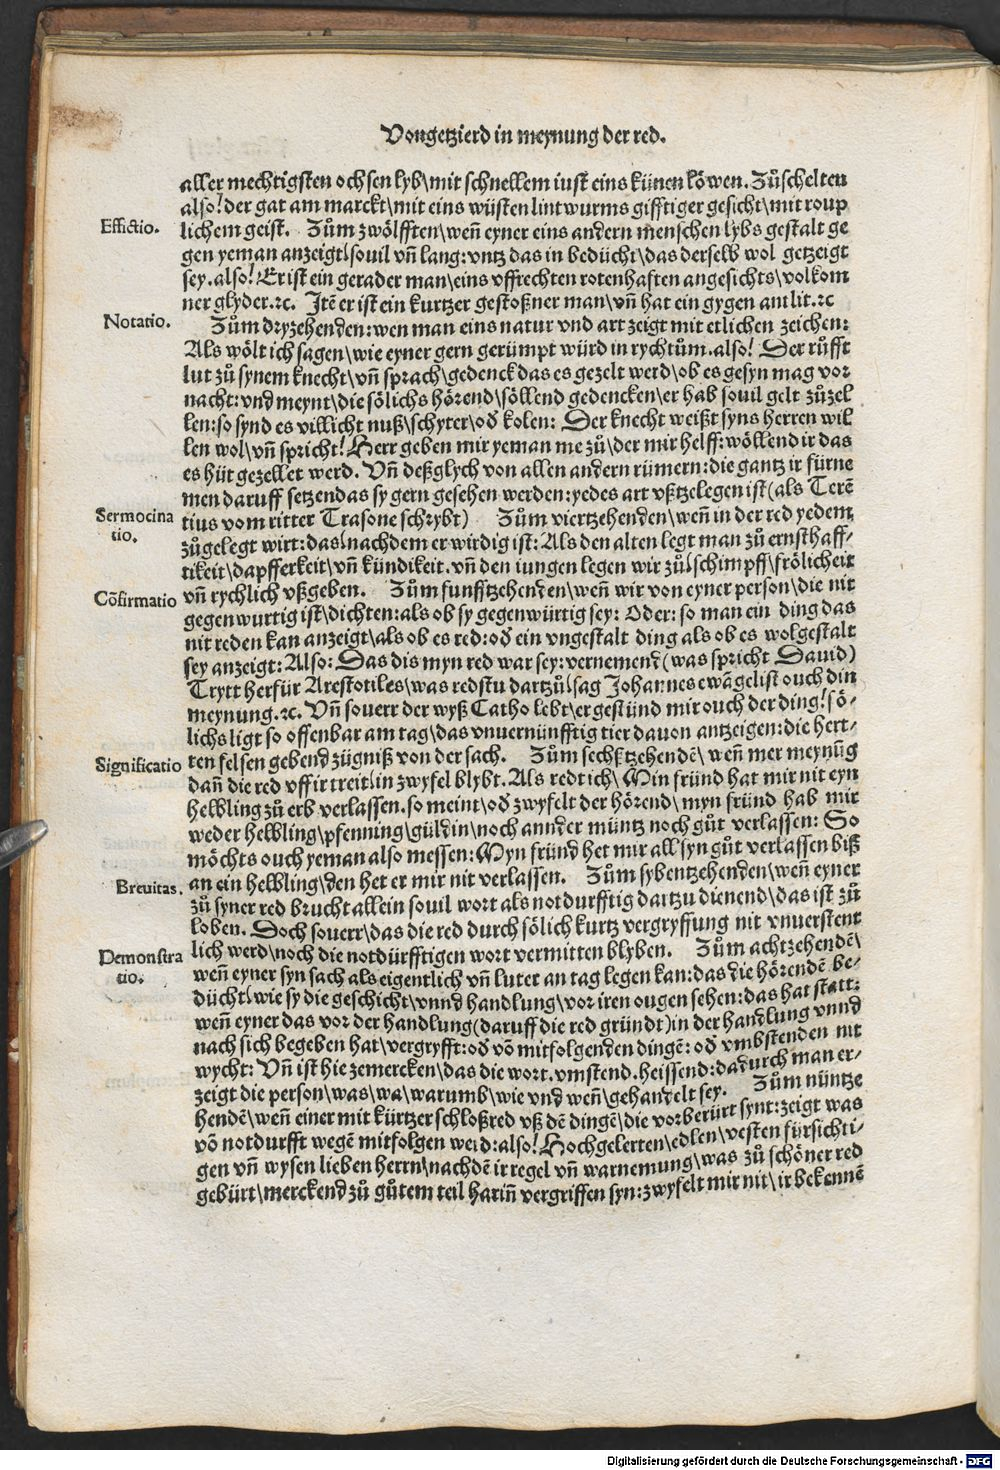 Von getzierd in meynung der red.
aller mechtigsten ochsen lyb\mit schnellem iust eins künen löwen. Zůschelten
also! der gat am marckt\mit eins wüsten lintwurms gifftiger gesicht\mit roup
Effictio.
lichem geist. Zům zwölfften\weñ eyner eins andern menschen lybs gestalt ge
gen yeman anzeigt\souil vñ lang: vntz das in bedücht\das derselb wol getzeigt
sey. also! Er ist ein gerader man\eins vffrechten rotenhaften angesichts\volkom
ner glyder.ꝛc. Itē er ist ein kurtzer gestoßner man\vñ hat ein gygen antlit.ꝛc
Notatio.
Zům dryzehenden: wen man eins natur vnd art zeigt mit etlichen zeichen:
Als wölt ich sagen\wie eyner gern gerümpt würd in rychtům. also! Der růfft
lut zů synem knecht\vñ sprach\gedenck das es gezelt werd\ob es gesyn mag vor
nacht: vnd meynt\die sölichs hörend\söllend gedencken\er hab souil gelt zůzel
len: so synd es villicht nuß\schyter\od kolen: Der knecht weißt syns herren wil
len wol\vñ spricht! Herr geben mir yeman me zů\der mir helff: wöllend ir das
es hüt gezellet werd. Vñ deßglych von allen andern rümern: die gantz ir fürne
men daruff setzen das sy gern gesehen werden: yedes art vßtzelegen ist (als Terē
Sermocina
tio.
tius vom ritter Trasone schrybt) Zům viertzehenden\weñ in der red yedem
zůgelegt wirt: das\nachdem er wirdig ist: Als den alten legt man zů ernsthaff-
tikeit\dapfferkeit\vñ kündikeit. vñ den iungen legen wir zů\schimpff\frölicheit
Cōfirmatio
vñ rychlich vßgeben. Zům funfftzehenden\weñ wir von eyner person\die nit
gegenwurtig ist\dichten: als ob sy gegenwürtig sey: Oder: so man ein ding das
nit reden kan anzeigt\als ob es red: od ein vngestalt ding als ob es wolgestalt
sey anzeigt: Also: Das dis myn red war sey: vernemend (was spricht Dauid)
Trytt herfür Arestotiles\was redstu dartzů\sag Johannes ewāgelist ouch din
meynung.ꝛc. Vñ souerr der wyß Catho lebt\er gestünd mir ouch der ding! sö-
lichs ligt so offenbar am tag\das vnuernünfftig tier dauon antzeigen: die hert-
Significatio
ten felsen gebend zügniß von der sach. Zům sechßtzehendē\weñ mer meynūg
dañ die red vff ir treit\in zwyfel blybt. Als redt ich\Min fründ hat mir nit eyn
helbling zů erb verlassen. so meint\od zwyfelt der hörend\myn fründ hab mir
weder helbling\pfenning\güldin\noch annder müntz noch gůt verlassen: So
möchts ouch yeman also messen: Myn fründ het mir all syn gůt verlassen biß
Breuitas.
an ein helbling\den het er mir nit verlassen. Zům sybentzehenden\weñ eyner
zů syner red brucht allein souil wort als notdurfftig dartzu dienend\das ist zů
loben. Doch souerr\das die red durch sölich kurtz vergryffung nit vnuerstent
Demonstra
tio.
lich werd\noch die notdürfftigen wort vermitten blyben. Zům achtzehendē\
weñ eyner syn sach als eigentlich vñ luter an tag legen kan: das die hörendē be-
dücht\wie sy die geschicht\vnnd handlung\vor iren ougen sehen: das hat statt:
weñ eyner das vor der handlung (daruff die red gründt) in der handlung vnnd
nach sich begeben hat\vergryfft: od vō mitfolgenden dingē: od vmbstenden nit
wycht: Vñ ist hie zemercken\das die wort. vmstend. heissend: dadurch man er-
zeigt die person\was\wa\warumb\wie vnd weñ\gehandelt sey. Zům nüntze
hendē\weñ einer mit kürtzer schloßred vß dē dingē\die vor berürt synt: zeigt was
vō notdurfft wegē mitfolgen werd: also! Hochgelerten\edlen\vesten fürsichti-
gen vñ wysen lieben herrn\nachdē ir regel vñ warnemung\was zů schöner red
gebürt\merckend zů gůtem teil hariñ vergriffen syn: zwyfelt mir nit\ir bekennē
Digitalisierung gefördert durch die Deutsche Forschungsgemeinschaft - DFG